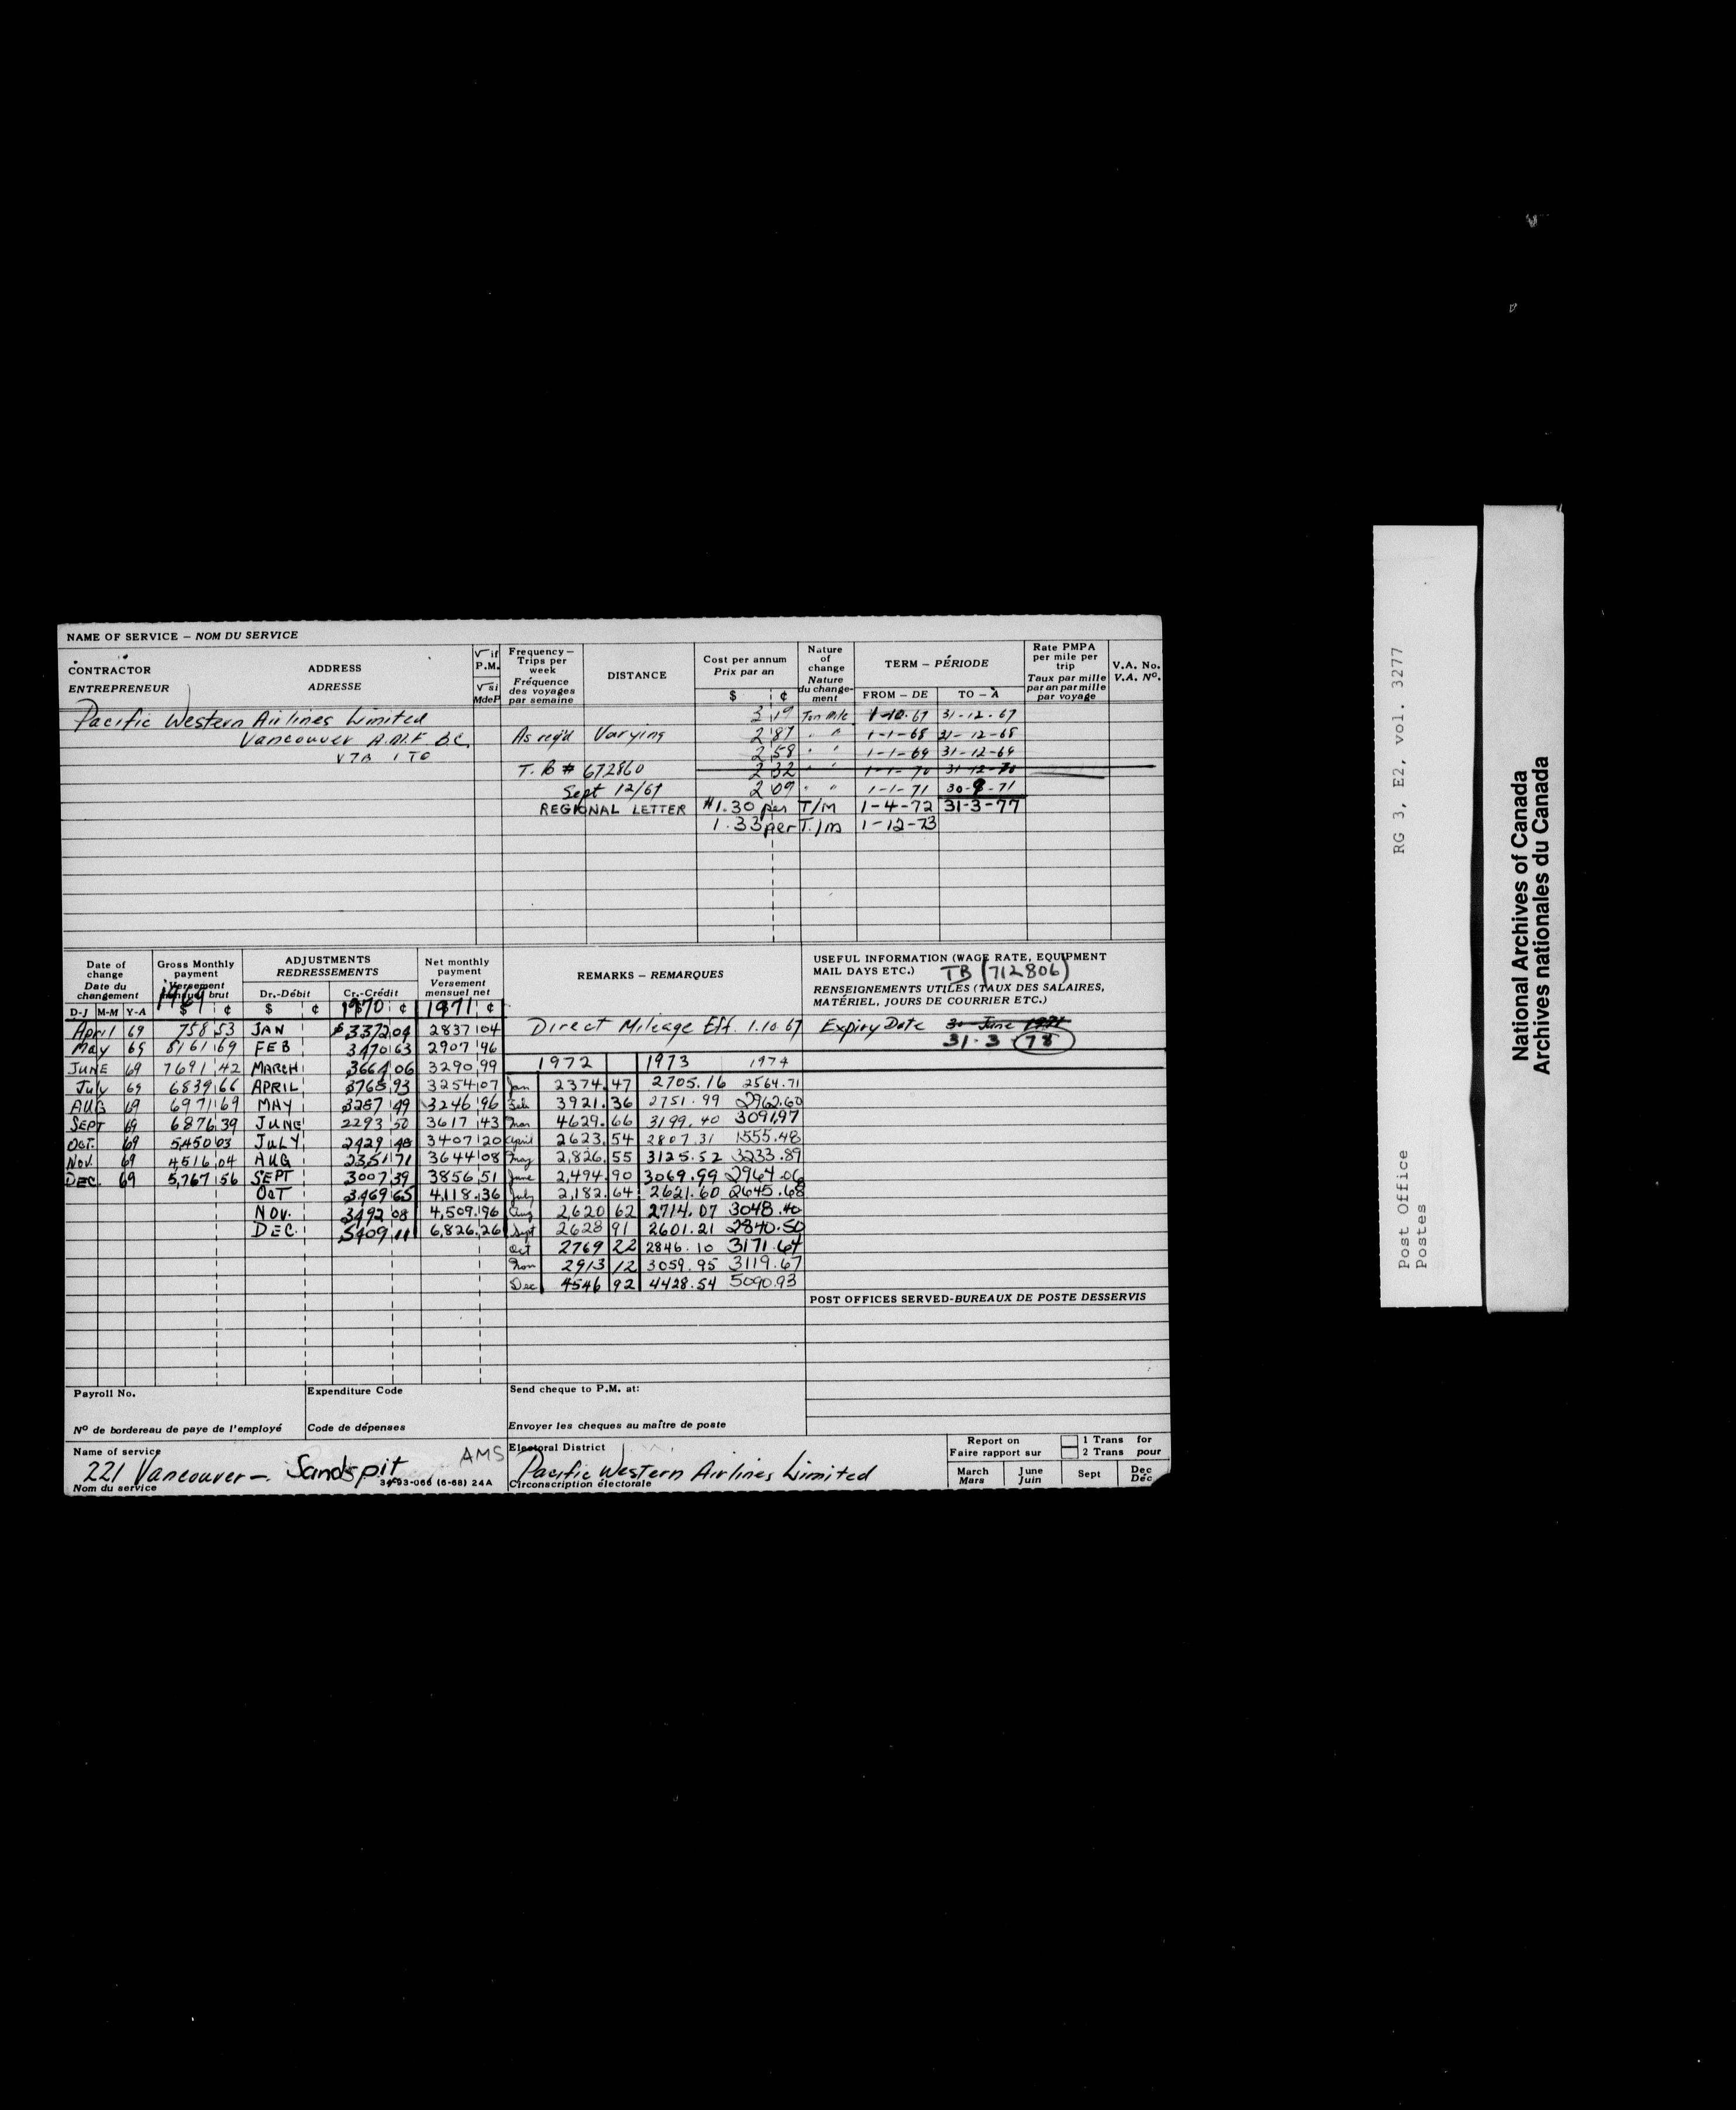 NAME OF SERVICE – NOM DU SERVICE
CONTRACTOR ADDRESS
ENTREPRENEUR ADRESSE
√ if P.M. √ si MdeP
Frequency – Trips per week Fréquence des voyages par semaine
DISTANCE
Cost per annum Prix par an $ ¢
Nature of change Nature du changement
TERM – PÉRIODE
FROM – DE TO – À
Rate PMPA per mile per trip Taux par mille par an par mille par voyage
V.A. No. V.A. Nº.
Pacific Western Airlines Limited 3 19 Ton Mile 1-10.67 31-12.67
Vancouver A.M.F B.C. As req'd Varying 2 87 " " 1-1-68 31-12-68
V7B 1T0 2 58 " " 1-1-69 31-12-69
T.B # 672860 2 32 " " 1-1-70 31-12-70
Sept 12/67 2 09 " " 1-1-71 30-9-71
REGIONAL LETTER $1.30 per T/M 1-4-72 31-3-77
1.33 per T/m 1-12-73
Date of change Date du changement
Gross Monthly payment Versement mensuel brut
ADJUSTMENTS REDRESSEMENTS
Net monthly payment Versement mensuel net
REMARKS – REMARQUES
USEFUL INFORMATION (WAGE RATE, EQUIPMENT MAIL DAYS ETC.) TB (712806)
RENSEIGNEMENTS UTILES (TAUX DES SALAIRES, MATÉRIEL, JOURS DE COURRIER ETC.)
Dr.-Débit Cr.-Crédit
D-J M-M Y-A 1969 $ ¢ $ ¢ 1970 ¢ 1971 ¢
Direct Mileage Eff. 1.10.67 Expiry Date 30 June 1971
31.3.78
April 69 758 53 JAN $3372 09 2837 04
May 69 8161 69 FEB 3470 63 2907 96
1972 1973 1974
JUNE 69 7691 42 MARCH 3664 06 3290 99
July 69 6839 66 APRIL 3765 93 3254 07 Jan 2374.47 2705.16 2564.71
AUG 69 6971 69 MAY 3287 49 3246 96 Feb 3921.36 2751.99 2962.60
SEPT 69 6876 39 JUNE 2293 50 3617 43 Mar 4629.66 3199.40 3091.97
OCT. 69 5450 03 JULY 2429 48 3407 20 April 2623.54 2807.31 1555.48
Nov. 69 4516 04 AUG 2351 71 3644 08 May 2,826.55 3125.52 3233.89
DEC. 69 5,767 56 SEPT 3007 39 3856 51 June 2,494.90 3069.99 2964.06
OCT 3469 65 4,118.36 July 2,182.64 2621.60 2645.68
NOV. 3492 08 4,509.96 Aug 2,620 62 2714.07 3048.40
DEC. 5409 11 6,826.26 Sept 2628 91 2601.21 2840.50
Oct 2769 22 2846.10 3171.64
Nov 2913 12 3059.95 3119.67
Dec 4546 92 4428.54 5090.93
POST OFFICES SERVED-BUREAUX DE POSTE DESSERVIS
Payroll No. Expenditure Code Send cheque to P.M. at:
Nº de bordereau de paye de l'employé Code de dépenses Envoyer les cheques au maître de poste
Name of service AMS Electoral District
221 Vancouver – Sandspit Pacific Western Airlines Limited
Nom du service 34-93-066 (6-68) 24A Circonscription électorale
Report on 1 Trans for
Faire rapport sur 2 Trans pour
March Mars June Juin Sept Dec Déc
Post Office RG 3, E2, vol. 3277
Postes
National Archives of Canada
Archives nationales du Canada